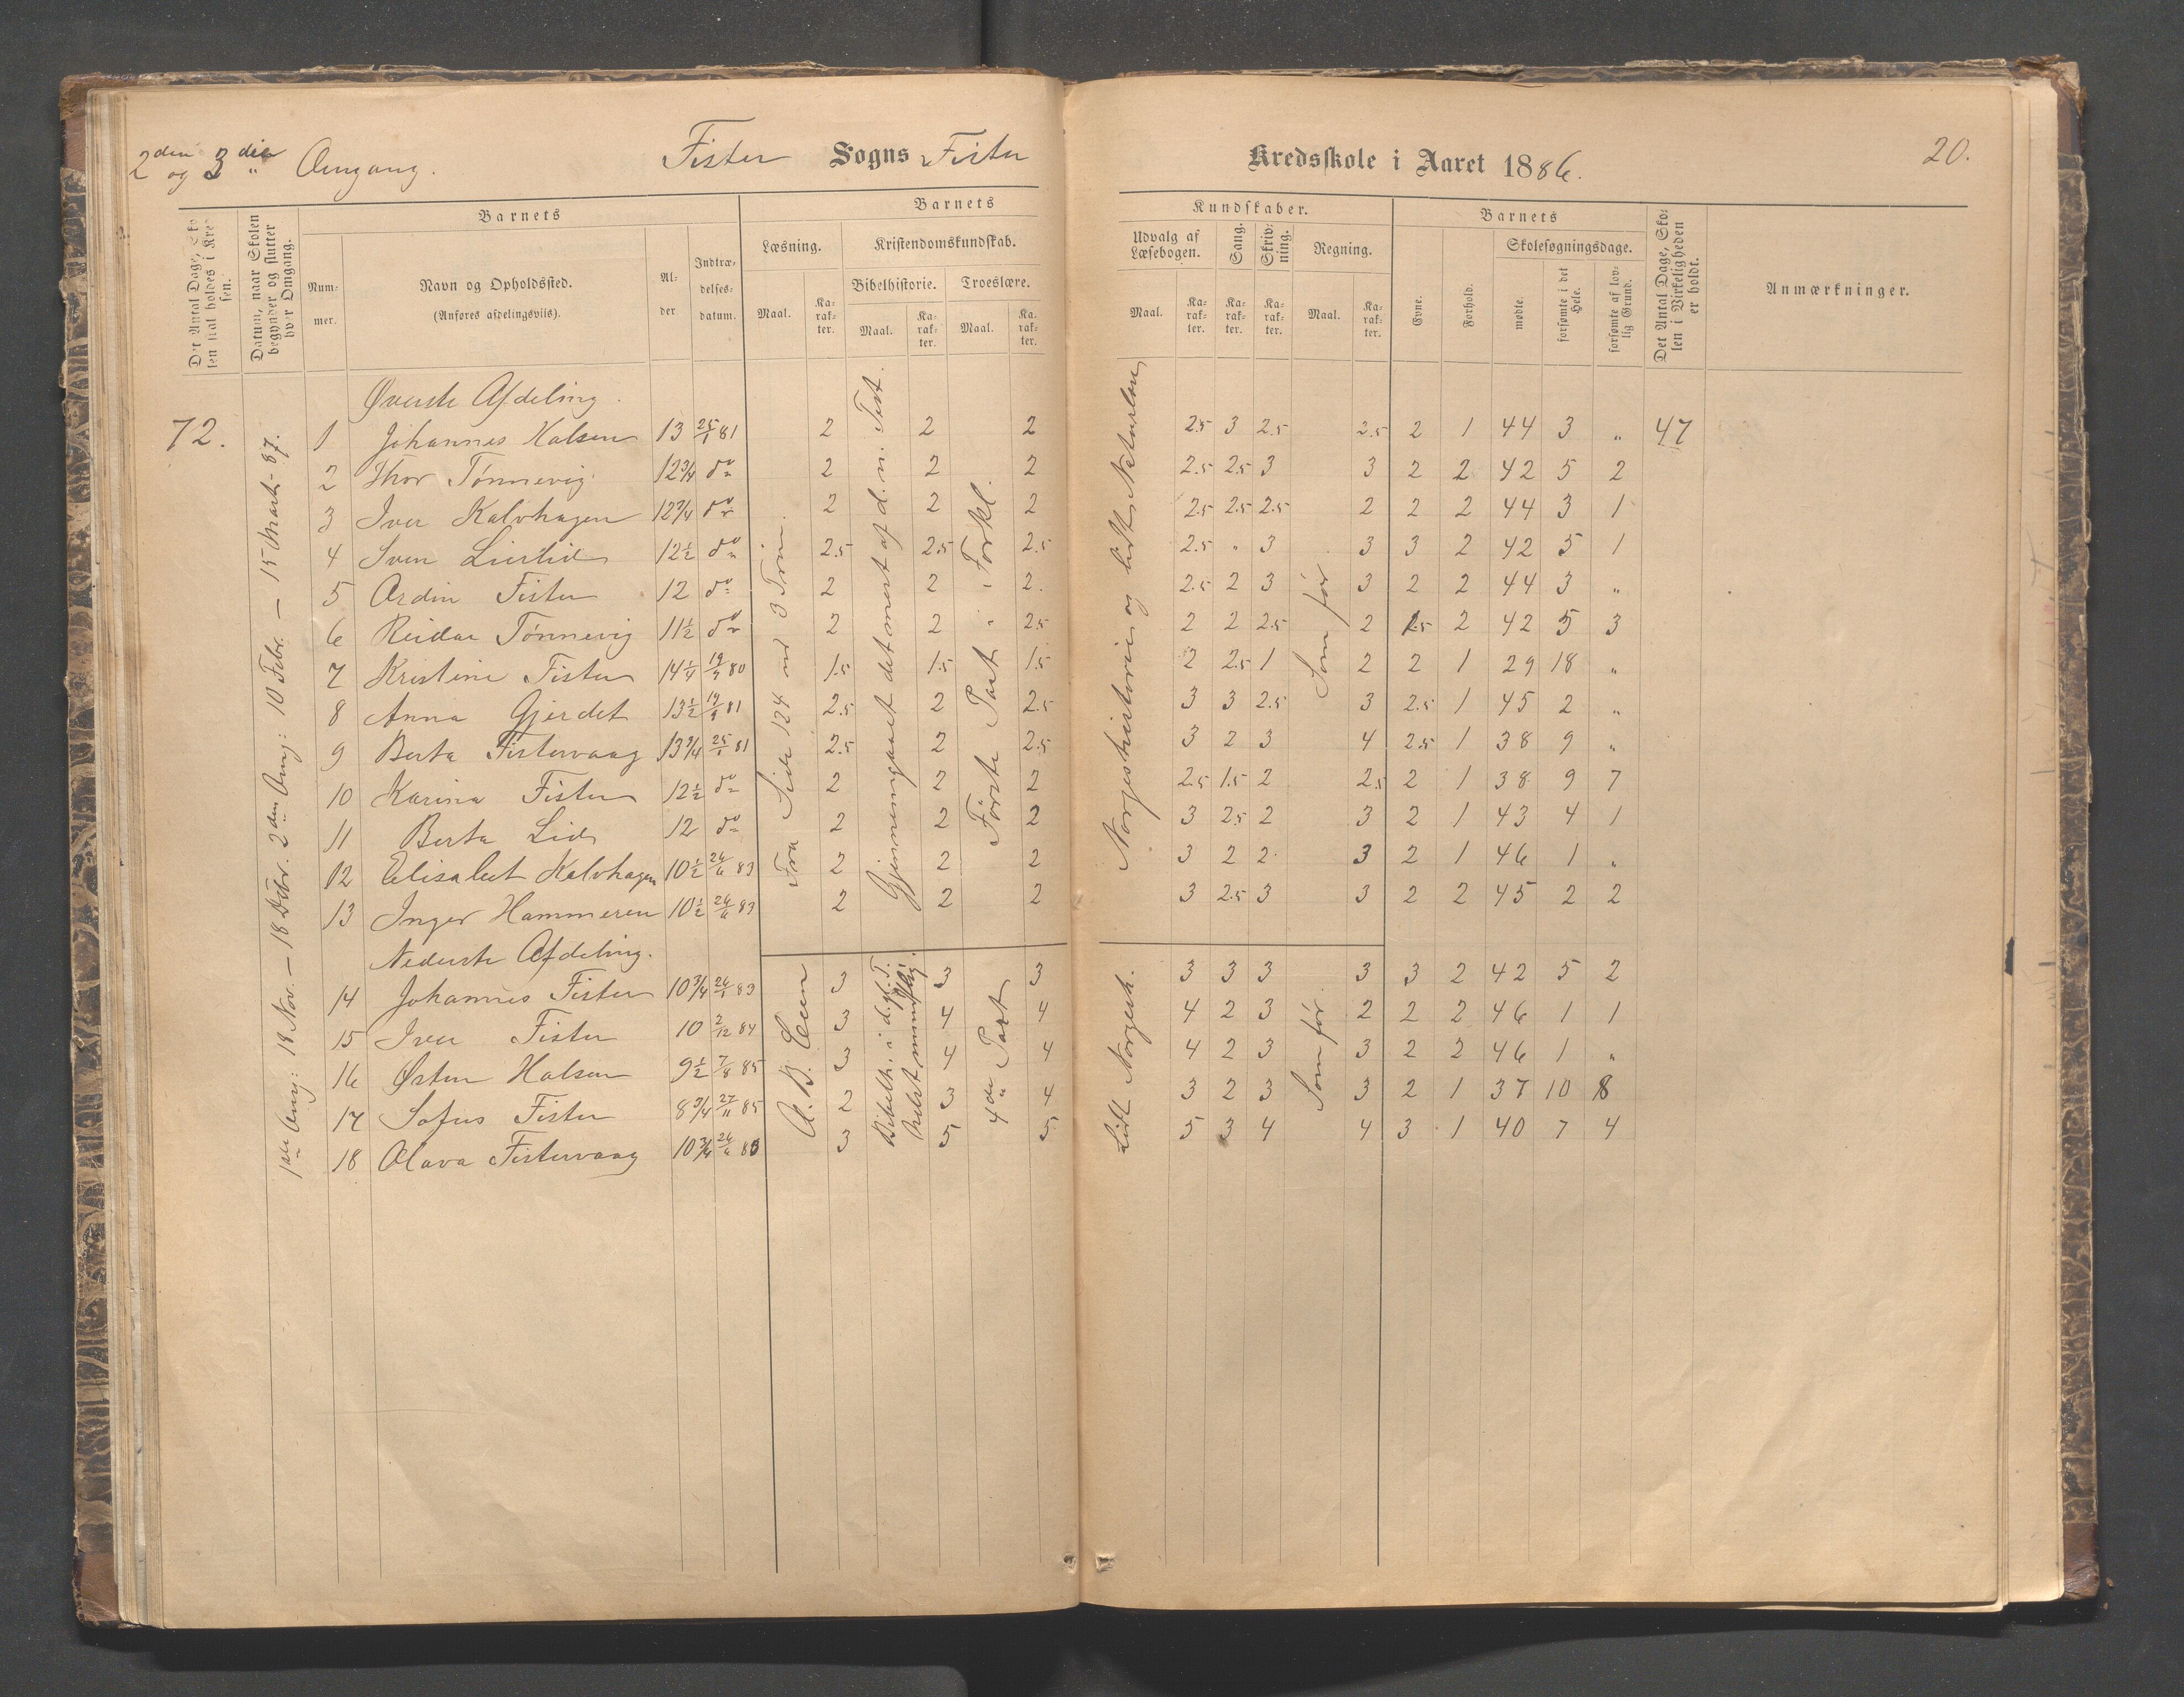 2den og 3die Omgang.
Fister Sogns Fister Kredsskole i Aaret 1886.
20.
Det Antal Dage, Skolen skal holdes i Kredsen.
Datum, naar Skolen begynder og slutter hver Omgang.
Barnets
Nummer.
Navn og Opholdssted.
(Anføres afdelingsviis).
Alder
Indtrædelsesdatum.
Barnets Kundskaber.
Læsning.
Maal.
Karakter.
Kristendomskundskab.
Bibelhistorie.
Maal.
Karakter.
Troeslære.
Maal.
Karakter.
Udvalg af Læsebogen.
Maal.
Karakter.
Sang.
Karakter.
Skrivning.
Karakter.
Regning.
Maal.
Karakter.
Barnets
Evne.
Forhold.
Skolesøgningsdage.
mødte.
forsømte i det Hele.
forsømte af lovlig Grund.
Det Antal Dage, Skolen i Virkeligheden er holdt.
Anmærkninger.
72.
1ste Omg: 18 Nov. – 18 Debr. 2den Omg: 10 Febr. – 15 Marts - 87.
Øverste Afdeling.
1 Johannes Halsen 13 25/1 81 2 2 2 2.5 3 2.5 2.5 2 1 44 3 „ 47
2 Thor Tønnevig 12 3/4 do 2 2 2 2.5 2.5 3 3 2 2 42 5 2
3 Iver Kalvhagen 12 3/4 do 2 2 2 2.5 2.5 2.5 2 2 2 44 3 1
4 Sven Lierlid 12 1/2 do 2.5 2.5 2.5 2.5 „ 3 3 3 2 42 5 1
5 Ardin Fister 12 do 2 2 2. 2.5 2 3 3 2 2 44 3 „
6 Reidar Tønnevig 11 1/2 do 2 2 2.5 2 2 2.5 2 1.5 2 42 5 3
7 Kristine Fister 14 1/4 80 1.5 1.5 1.5 2 2.5 1 2 2 1 29 18 „
8 Anna Gjerdet 13 1/2 81 2.5 2 2.5 3 3 2.5 3 2.5 1 45 2 „
9 Berta Fistervaag 13 3/4 25/1 81 2.5 2 2.5 3 2 3 4 2.5 1 38 9 „
10 Karina Fister 12 1/2 do 2 2 2 2.5 1.5 2 2.5 2 1 38 9 7
11 Berta Lid 12 do 2 2 2 3 2.5 2 3 2 1 43 4 1
12 Elisabet Kalvhagen 10 1/2 26/6 83 2 2 2 3 2 2 3 2 1 46 1 „
13 Inger Hammeren 10 1/2 26/6 83 2 2 2 3 2.5 3 3 2 2 45 2 2
Fra Side 124 ud 3 Trin.
Gjennemgaaet det mest af d. n. Test.
Første Part „ „ Forkl.
Norgeshistorien og lidt Naturlære
Som før
Nederste Afdeling.
14 Johannes Fister 10 3/4 83 3 3 3 3 3 3 3 3 2 42 5 2
15 Iver Fister 10 2/12 84 3 4 4 4 2 3 2 2 2 46 1 1
16 Østen Halsen 9 1/2 7/8 85 3 4 4 4 2 3 3 2 2 46 1 „
17 Sofus Fister 8 3/4 27/11 85 2 3 4 3 2 3 3 2 1 37 10 8
18 Olava Fistervaag 10 3/4 26/6 83 3 5 5 5 3 4 4 3 1 40 7 4
Bibelh. i d. gl. T.
4de Part
Lidt Norgesh.
Som før.